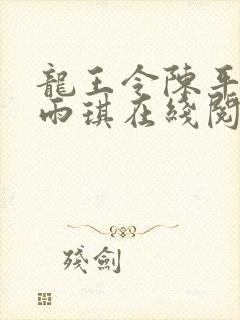 龍王令陳平
雨琪在綫閱
殘劍